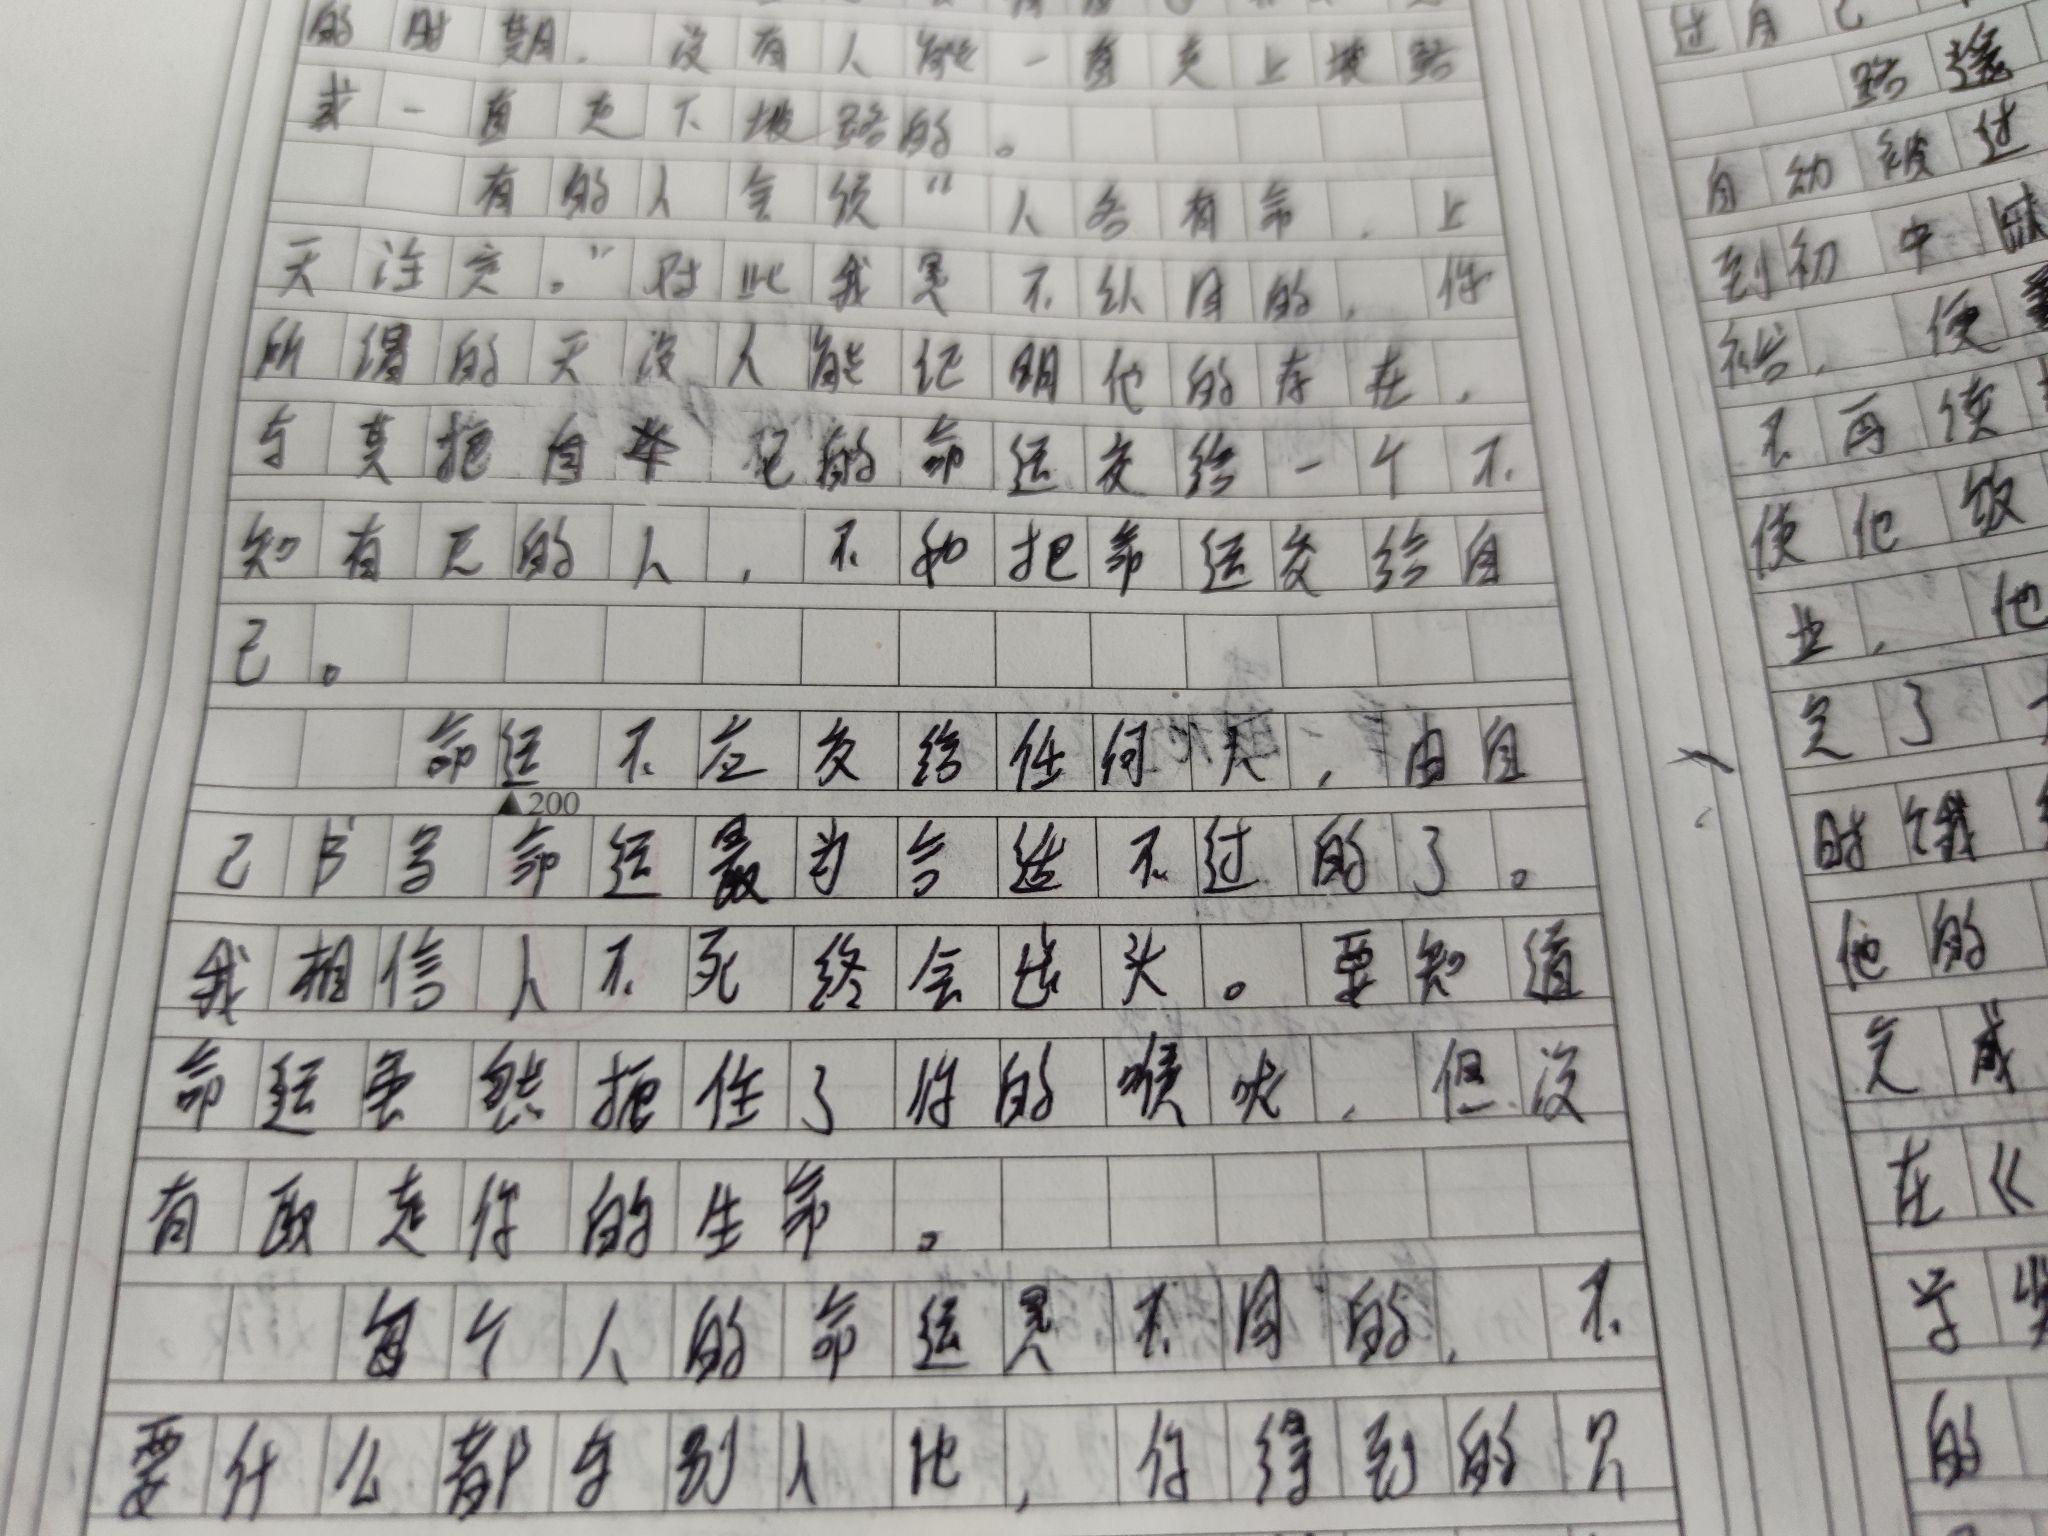 的时期，没有人能一直走上坡路
或一直走下坡路的。
有的人会须“人各有命，上
天注定。”对此我是不认同的，你
所谓的天没人能证明他的存在，
与其把自己的命运交给一个不
知有无的人，不如把命运交给自
己。
命运不应交给任何人，由自
己书写命运最为合适不过的了。
我相信人不死终会出头。要知道
命运虽然扼住了你的喉咙，但没
有取走你的生命。
每个人的命运是不同的，不
要什么都与别人比，你得到的只
过自己
路遥
自幼被过
到初中
，使
不再读
使他饭
业，他
完了
▲200
时饿
他的
完成
在《
学
的